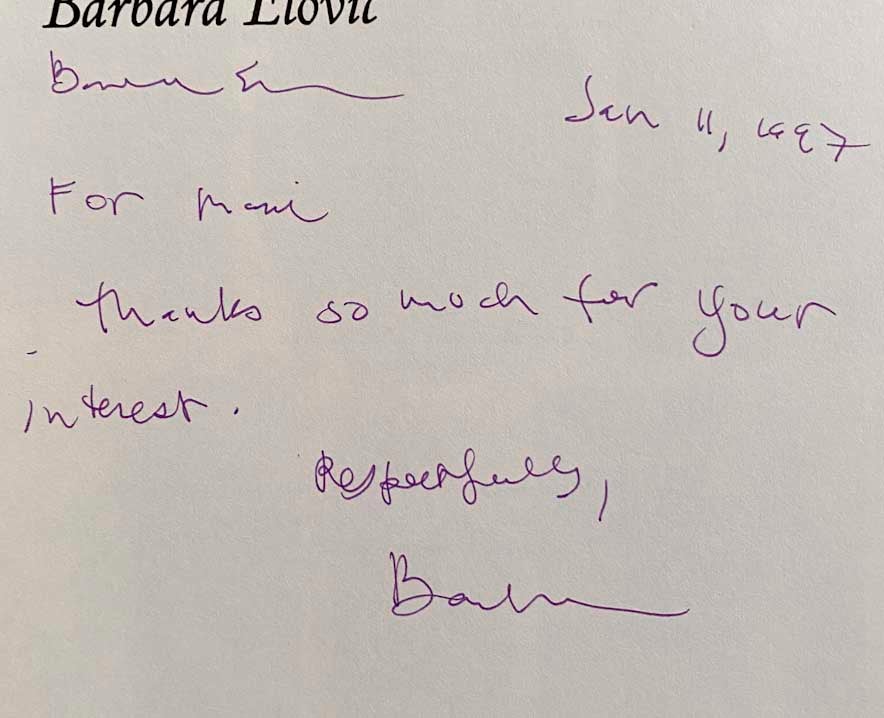 Barbara Elovic
Jan 11, 1997
For
Thanks so much for your
interest.
Respectfully,
Barbara